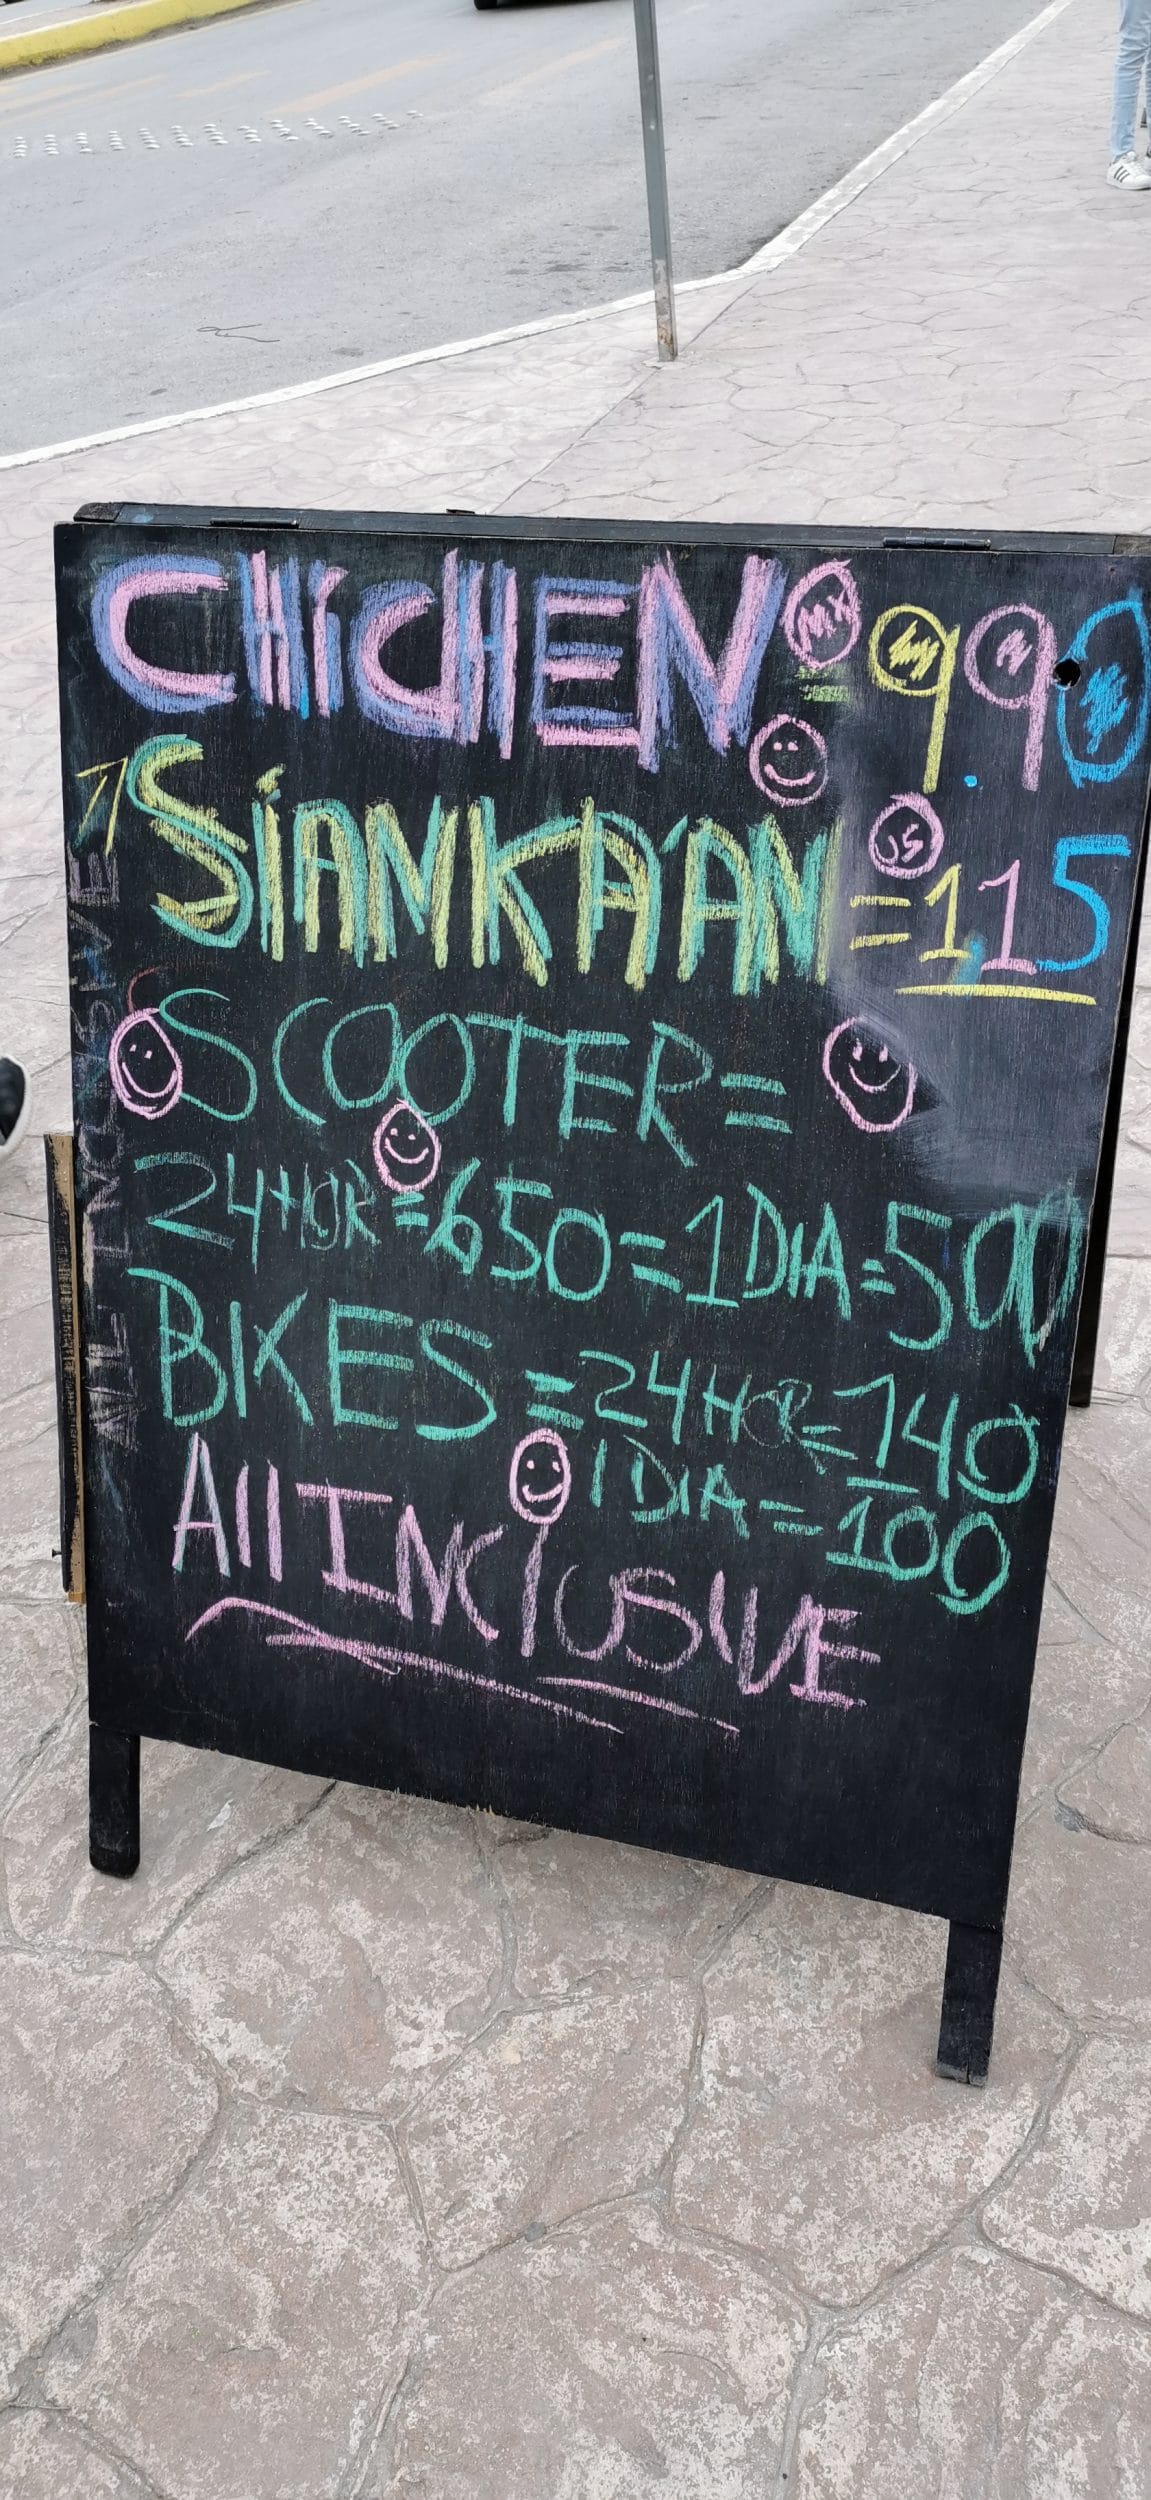 CHICHEN MX = 990
SIANKA'AN US = 115
SCOOTER =
24HOR = 650 = 1DIA = 500
BIKES = 24HOR = 140
1DIA = 100
All INCLUSIVE
ALL INCLUSIVE